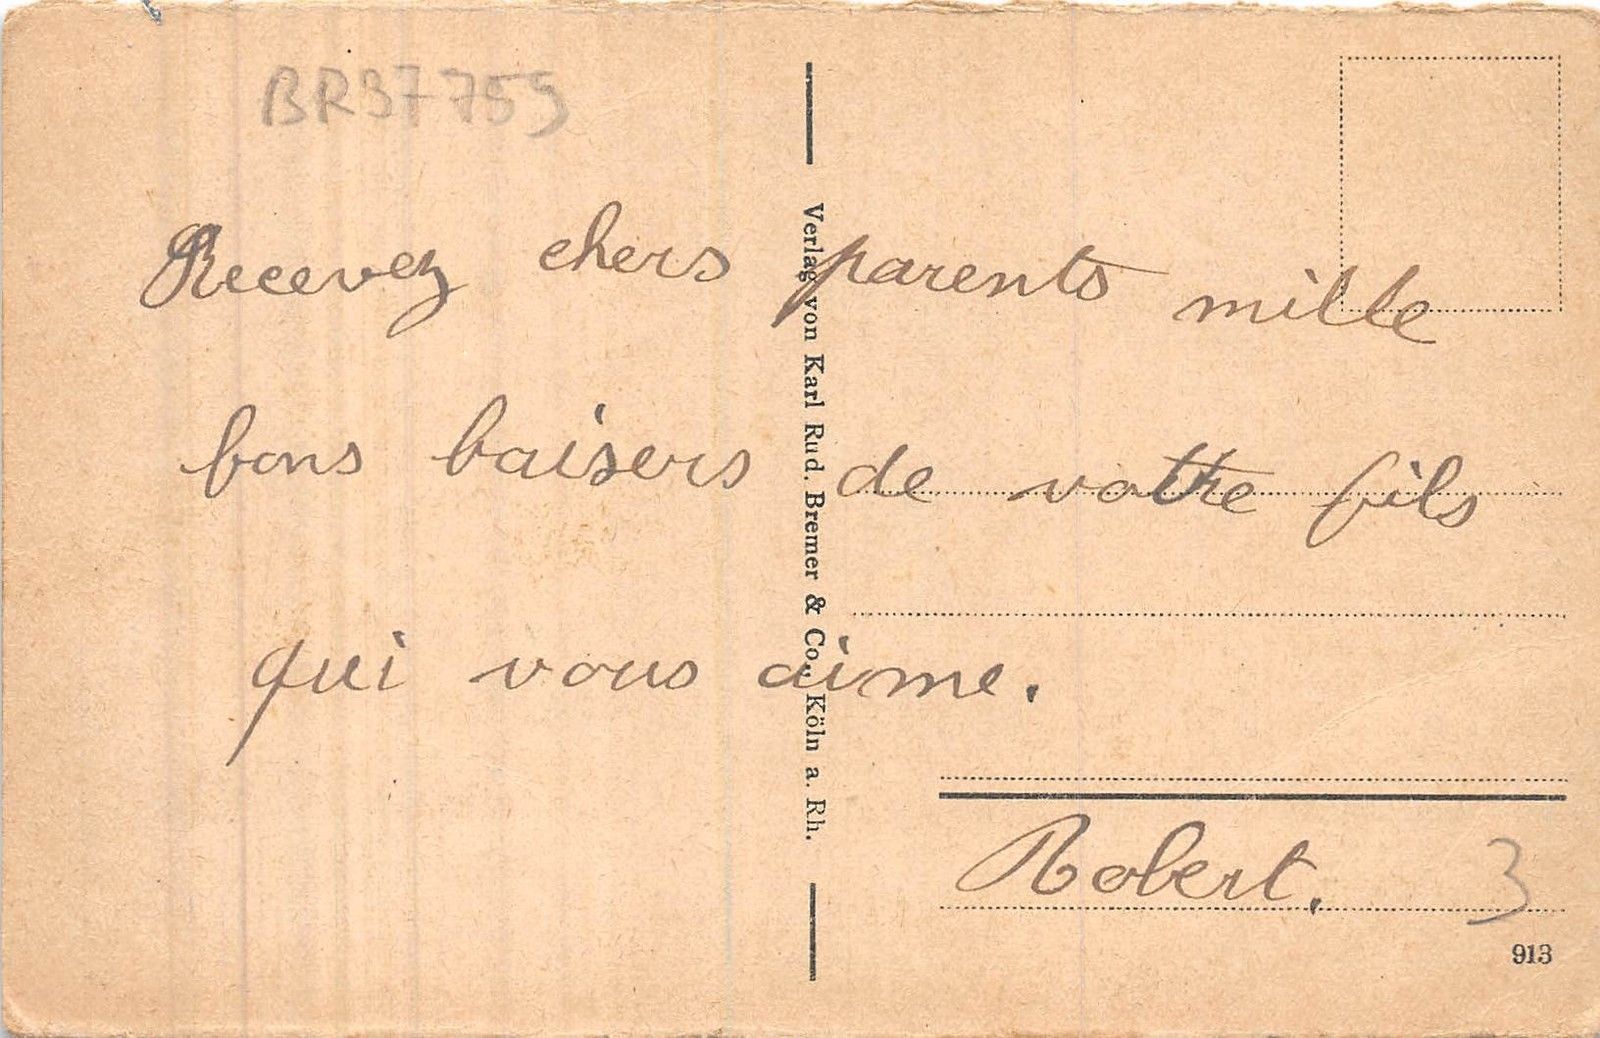 BR37755
Recevez chers parents mille
bons baisers de votre fils
qui vous aime.
Robert.
3
913
Verlag von Karl Rud. Bremer & Co., Köln a. Rh.